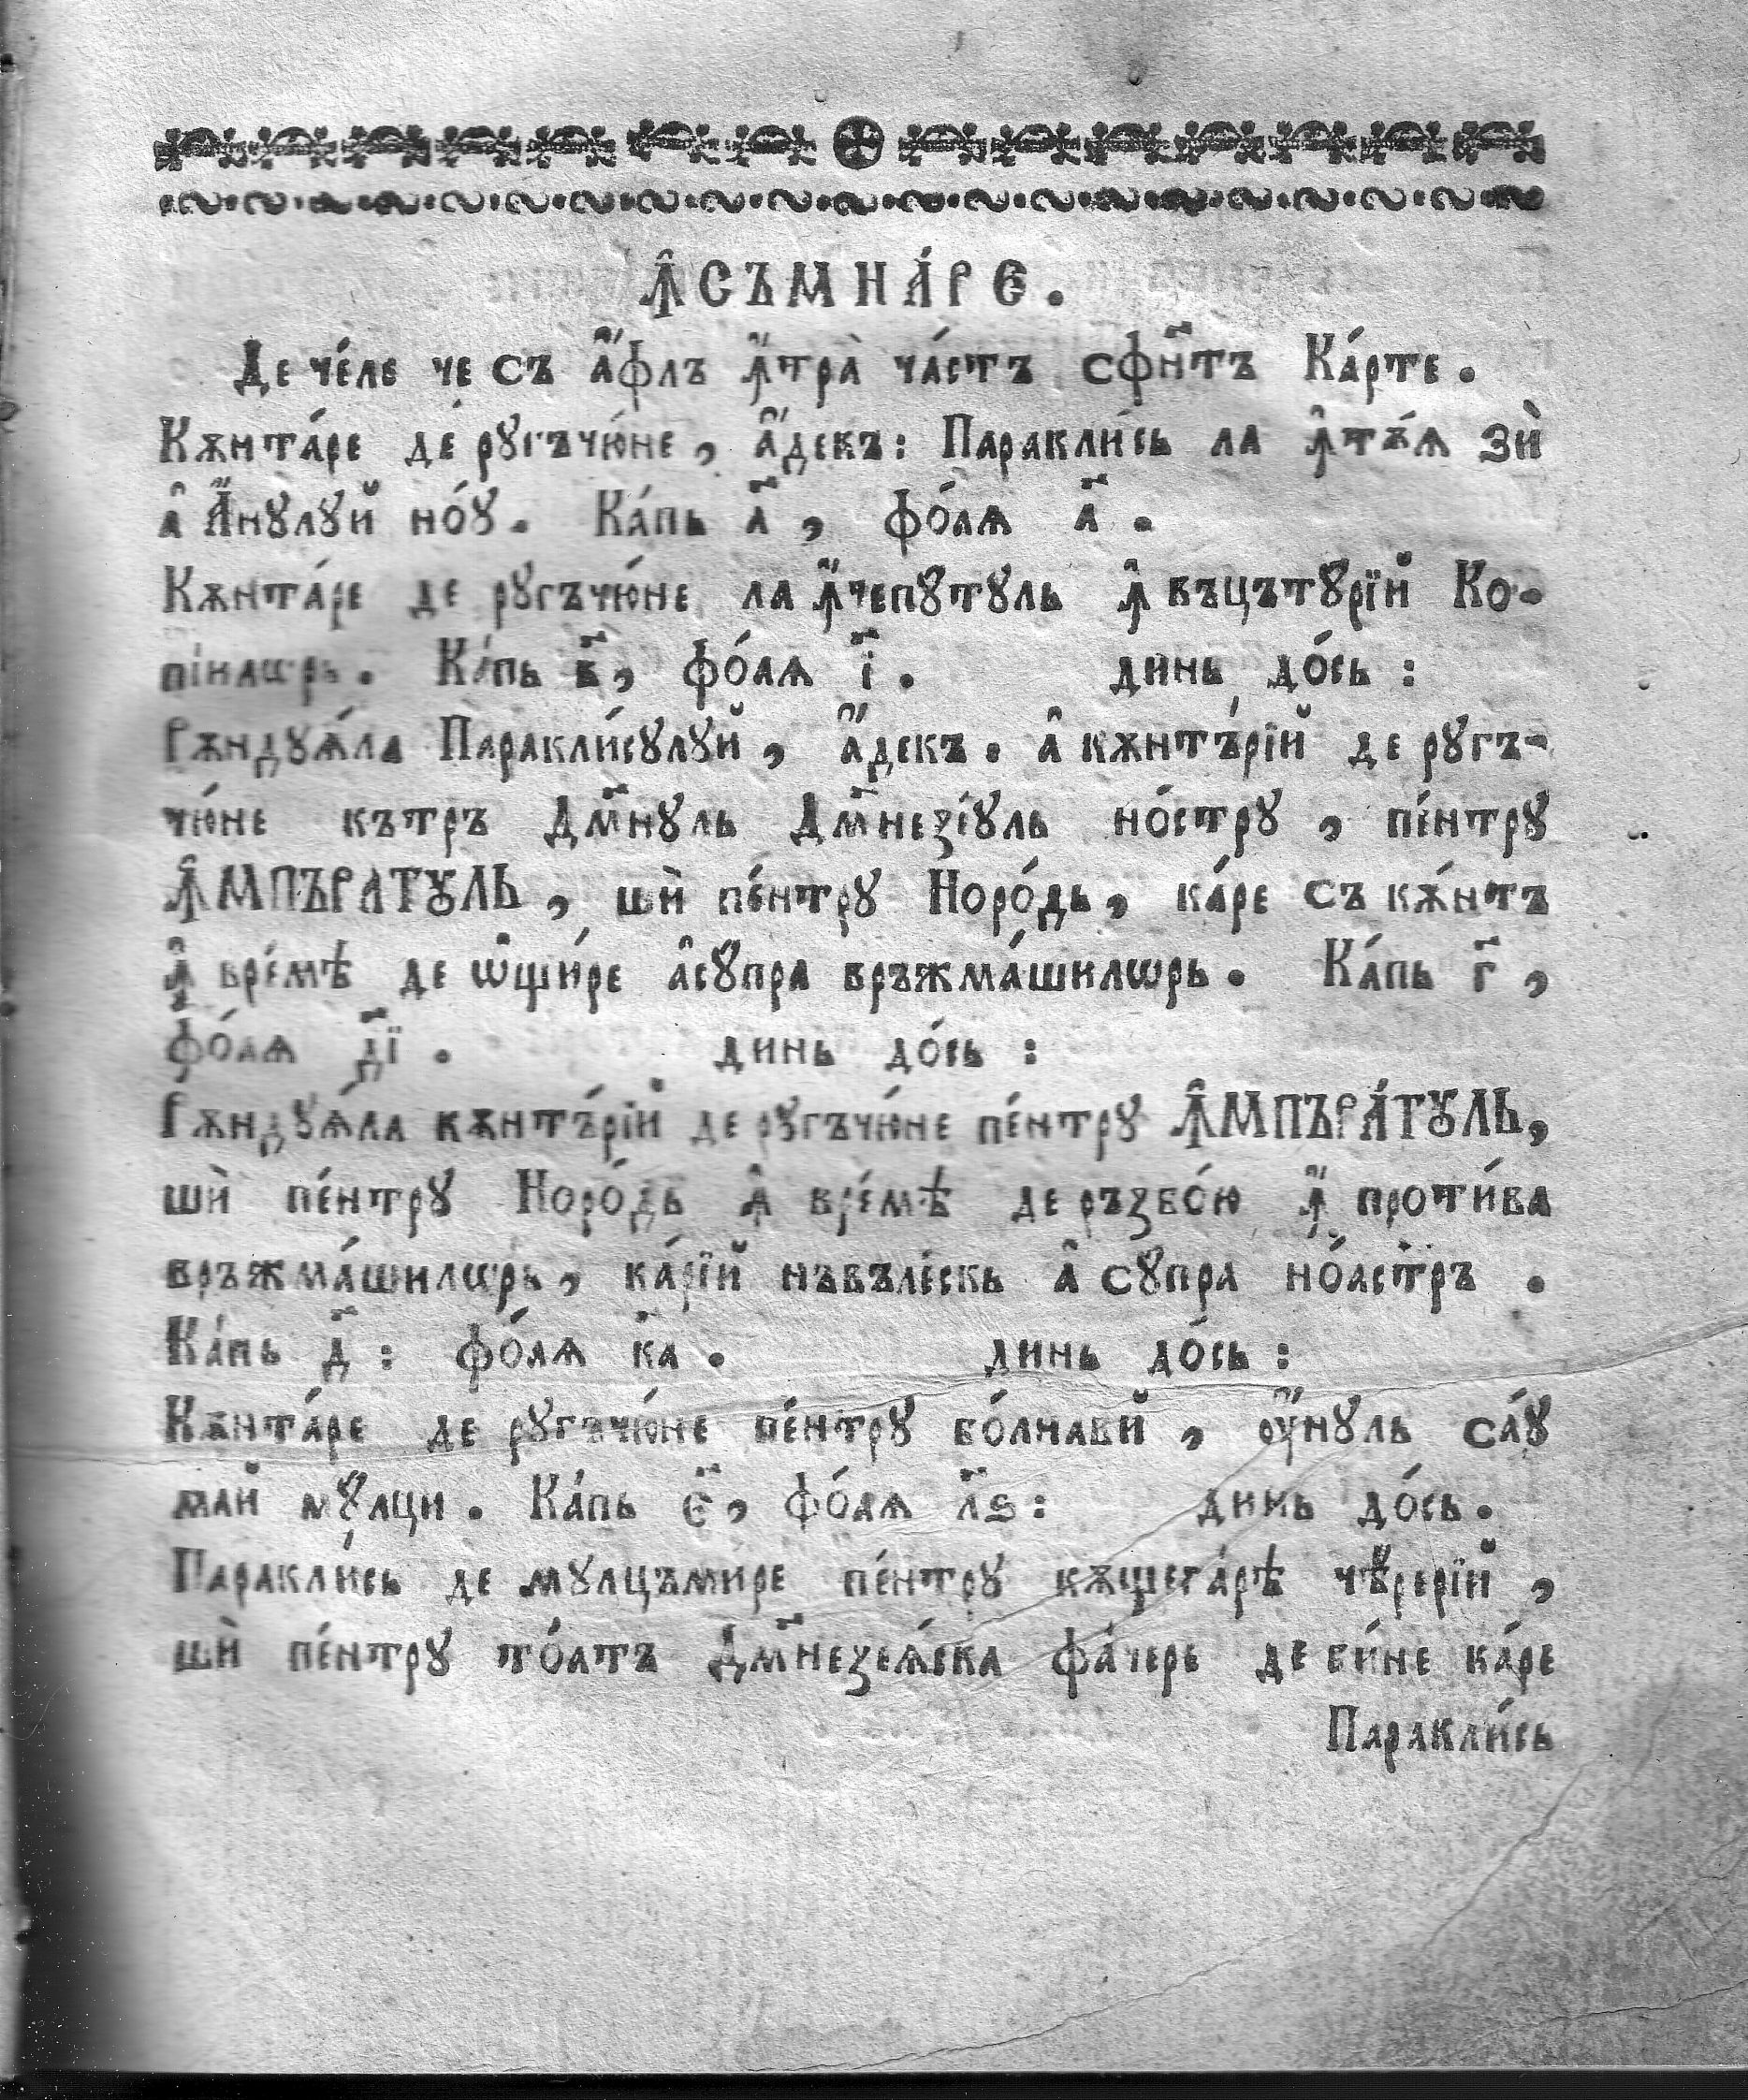 Ꙟ҆СЪМНА́РЄ.
Де че́ле че съ а҆́флъ ꙟ҆трꙋ ча́стъ сф҃нтъ Ка́рте.
Кѫнта́ре де рꙋгъчю́не, а҆́декъ: Паракли́сь ла ꙟ҆тъ́ѧ зѝ
а҆ А҆́нꙋлꙋй но́ꙋ. Ка́пь а҃, фо́аѧ а҃.
Кѫнта́ре де рꙋгъчю́не ла ꙟ҆чепꙋтꙋль ꙟ҆ въцътꙋрїй Ко-
пі́илѡрь. Ка́пь в҃, фо́аѧ і҃. динь до́сь:
Рѫндꙋѧ́ла Паракли́сꙋлꙋй, а҆́декъ. а҆ кѫнтъ́рїй де рꙋгъ-
чю́не кътръ Дм҃нꙋль Дм҃незі́ꙋль но́стрꙋ, пе́нтрꙋ
Ꙟ҆МПЪРАТꙊЛЬ, шѝ пе́нтрꙋ Норо́дь, ка́ре съ кѫ́нтъ
ꙟ҆ вре́мѣ де ѡ҆щи́ре а҆сꙋпра връжма́шилѡрь. Ка́пь г҃,
фо́аѧ д҃ї. динь до́сь:
Рѫндꙋѧ́ла кѫнтъ́рїй де рꙋгъчю́не пе́нтрꙋ Ꙟ҆МПЪРА́ТꙊЛЬ,
шѝ пе́нтрꙋ Норо́дь ꙟ҆ вре́мѣ де ръзбо́ю ꙟ҆ проти́ва
връжма́шилѡрь, ка́рїй нъвъле́скь а҆ сꙋпра но́астръ.
Ка́пь д҃: фо́аѧ к҃а. динь до́сь:
Кѫнта́ре де рꙋгъчю́не пе́нтрꙋ бо́лнави́й, ѹ҆́нꙋль са́ꙋ
май мꙋ́лци. Ка́пь є҃, фо́аѧ л҃ѕ: динь до́сь.
Паракли́сь де мꙋлцъмире пе́нтрꙋ кѫщега́рѣ че́рерїй,
шѝ пе́нтрꙋ то́атъ Дм҃незеѧ́ска фа́чере де би́не ка́ре
Паракли́сь